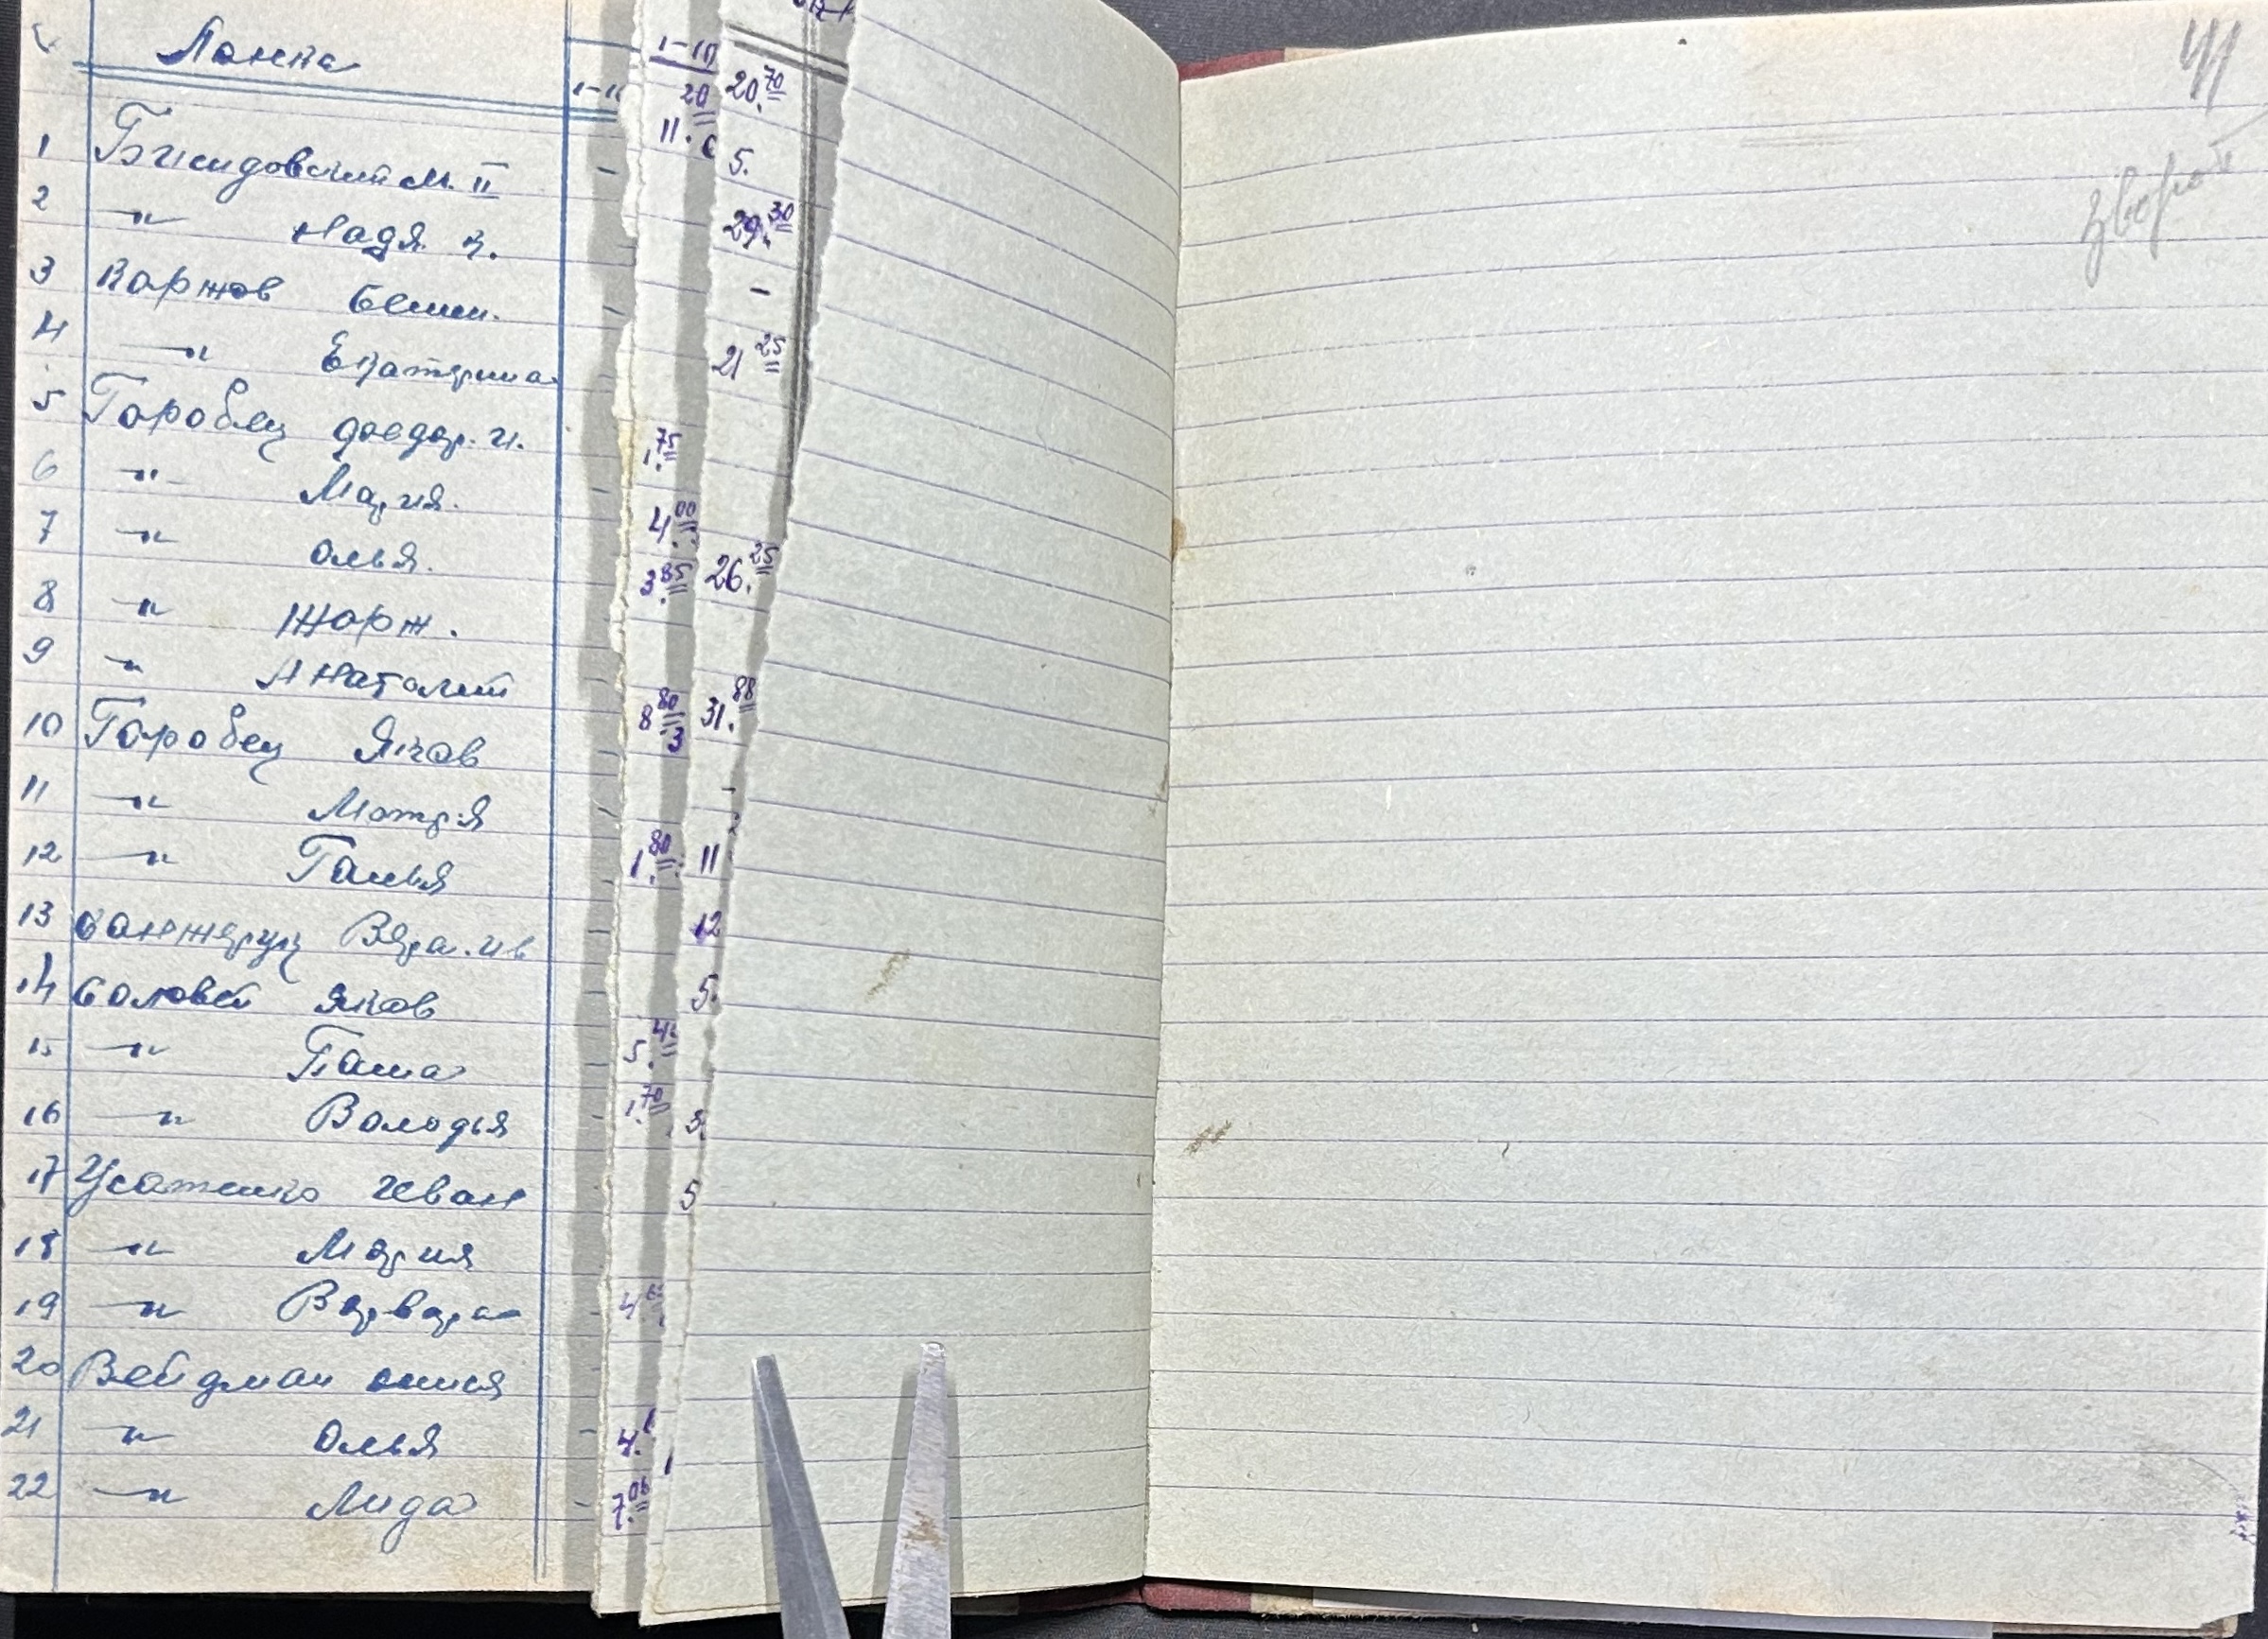 Ланка
1-15
20
20.70
1 м. II
11.
5.
2 —"— Надя
29.30
3 Коржов Семен.
-
4 —"— Екатерина
21 25
5 Горобец Фведор. И.
1.75
6 —"— Мария.
4.00
7 —"— Олья.
3.85 26.25
8 —"— Жорж.
9 —"— Анатолий
8 80 31.88
3
10 Горобец Яков
-
11 —"— Мотря
1.80 11
12 —"— Ганья
12
13 Вера. Ив
5.
14 Соловей Яков
5.
15 —"— Паша
1.70
3.
16 —"— Володья
5
17 Усатенко Иван
18 —"— Мария
4
19 —"— Варвара
20 Вейдман
4.
21 —"— Олья
7.06
22 —"— Лида
41
зворот